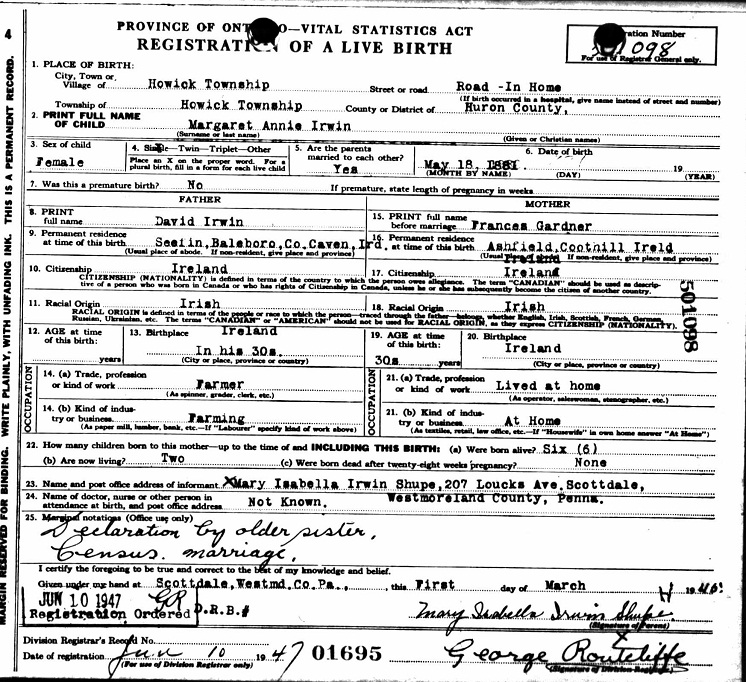 4
PROVINCE OF ONT O—VITAL STATISTICS ACT
REGISTRATION OF A LIVE BIRTH
ration Number
098
For use of Registrar General only.
1. PLACE OF BIRTH:
City, Town or,
Village of Howick Township Street or road Road -In Home
(If birth occurred in a hospital, give name instead of street and number)
Township of Howick Township County or District of Huron County,
2. PRINT FULL NAME
OF CHILD Margaret Annie Irwin
(Surname or last name) (Given or Christian names)
3. Sex of child
Female
4. Single—Twin—Triplet—Other
Place an X on the proper word. For a
plural birth, fill in a form for each live child
5. Are the parents
married to each other?
Yes
6. Date of birth
May 18, 1881. 19
(MONTH BY NAME) (DAY) (YEAR)
7. Was this a premature birth? No If premature, state length of pregnancy in weeks
FATHER
MOTHER
8. PRINT
full name David Irwin
15. PRINT full name
before marriage Frances Gardner
9. Permanent residence
at time of this birth Seelin,Baleboro,Co.Caven,Ird.
(Usual place of abode. If non-resident, give place and province)
16. Permanent residence
at time of this birth Ashfield,Coothill Ireld
(Usual If non-resident, give place and province)
10. Citizenship Ireland 17. Citizenship Ireland
CITIZENSHIP (NATIONALITY) is defined in terms of the country to which the person owes allegiance. The term "CANADIAN" should be used as descrip-
tive of a person who was born in Canada or who has rights of Citizenship in Canada, unless he or she has subsequently become the citizen of another country.
11. Racial Origin Irish 18. Racial Origin Irish
RACIAL ORIGIN is defined in terms of the people or race to which the person—traced through the father—belongs, whether English, Irish, Scottish, French, German,
Russian, Ukrainian, etc. The terms "CANADIAN" or "AMERICAN" should not be used for RACIAL ORIGIN, as they express CITIZENSHIP (NATIONALITY).
501098
12. AGE at time
of this birth:
years
13. Birthplace Ireland
In his 30s.
(City or place, province or country)
19. AGE at time
of this birth:
30s years
20. Birthplace
Ireland
(City or place, province or country)
OCCUPATION
14. (a) Trade, profession
or kind of work Farmer
(As spinner, grader, clerk, etc.)
14. (b) Kind of indus-
try or business Farming
(As paper mill, lumber, bank, etc.—If "Labourer" specify kind of work above)
OCCUPATION
21. (a) Trade, profession
or kind of work Lived at home
(As operator, saleswoman, stenographer, etc.)
21. (b) Kind of indus-
try or business At Home
(As textiles, retail, law office, etc.—If "Housewife" in own home answer "At Home")
22. How many children born to this mother—up to the time of and INCLUDING THIS BIRTH: (a) Were born alive? Six (6)
(b) Are now living? Two (c) Were born dead after twenty-eight weeks pregnancy? None
23. Name and post office address of informant XMary Isabella Irwin Shupe,207 Loucks Ave.Scottdale,
Westmoreland County, Penna.
24. Name of doctor, nurse or other person in
attendance at birth, and post office address Not Known.
25. Marginal notations (Office use only)
Declaration by older sister,
Census. marriage.
I certify the foregoing to be true and correct to the best of my knowledge and belief.
Given under my hand at Scottdale,Westmd.Co.Pa., this First day of March 1946
JUN 10 1947
Registration Ordered
D.R.B.#
Mary Isabella Irwin Shupe.
(Signature of Parent)
Division Registrar's Record No.
Date of registration Jun 10 1947
(For use of Division Registrar only)
01695
George Routcliffe
(Signature of Division Registrar)
MARGIN RESERVED FOR BINDING. WRITE PLAINLY, WITH UNFADING INK. THIS IS A PERMANENT RECORD.